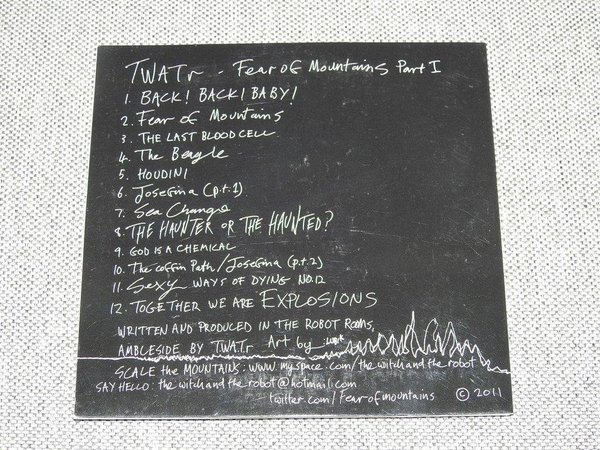 TWATr - Fear of Mountains Part I
1. BACK! BACK! BABY!
2. Fear of Mountains
3. THE LAST BLOOD CELL
4. The Beagle
5. HOUDINI
6. Josefina (p.t.1)
7. Sea Change
8. THE HAUNTER OR THE HAUNTED?
9. GOD IS A CHEMICAL
10. The Coffin Path/Josefina (p.t.2)
11. Sexy WAYS OF DYING NO.12
12. TOGETHER WE ARE EXPLOSIONS
WRITTEN AND PRODUCED IN THE ROBOT ROOMS,
AMBLESIDE BY TWATr Art by
SCALE the MOUNTAINS: www.myspace.com/thewitchandtherobot
SAY HELLO: thewitchandtherobot@hotmail.com
twitter.com/fearofmountains © 2011